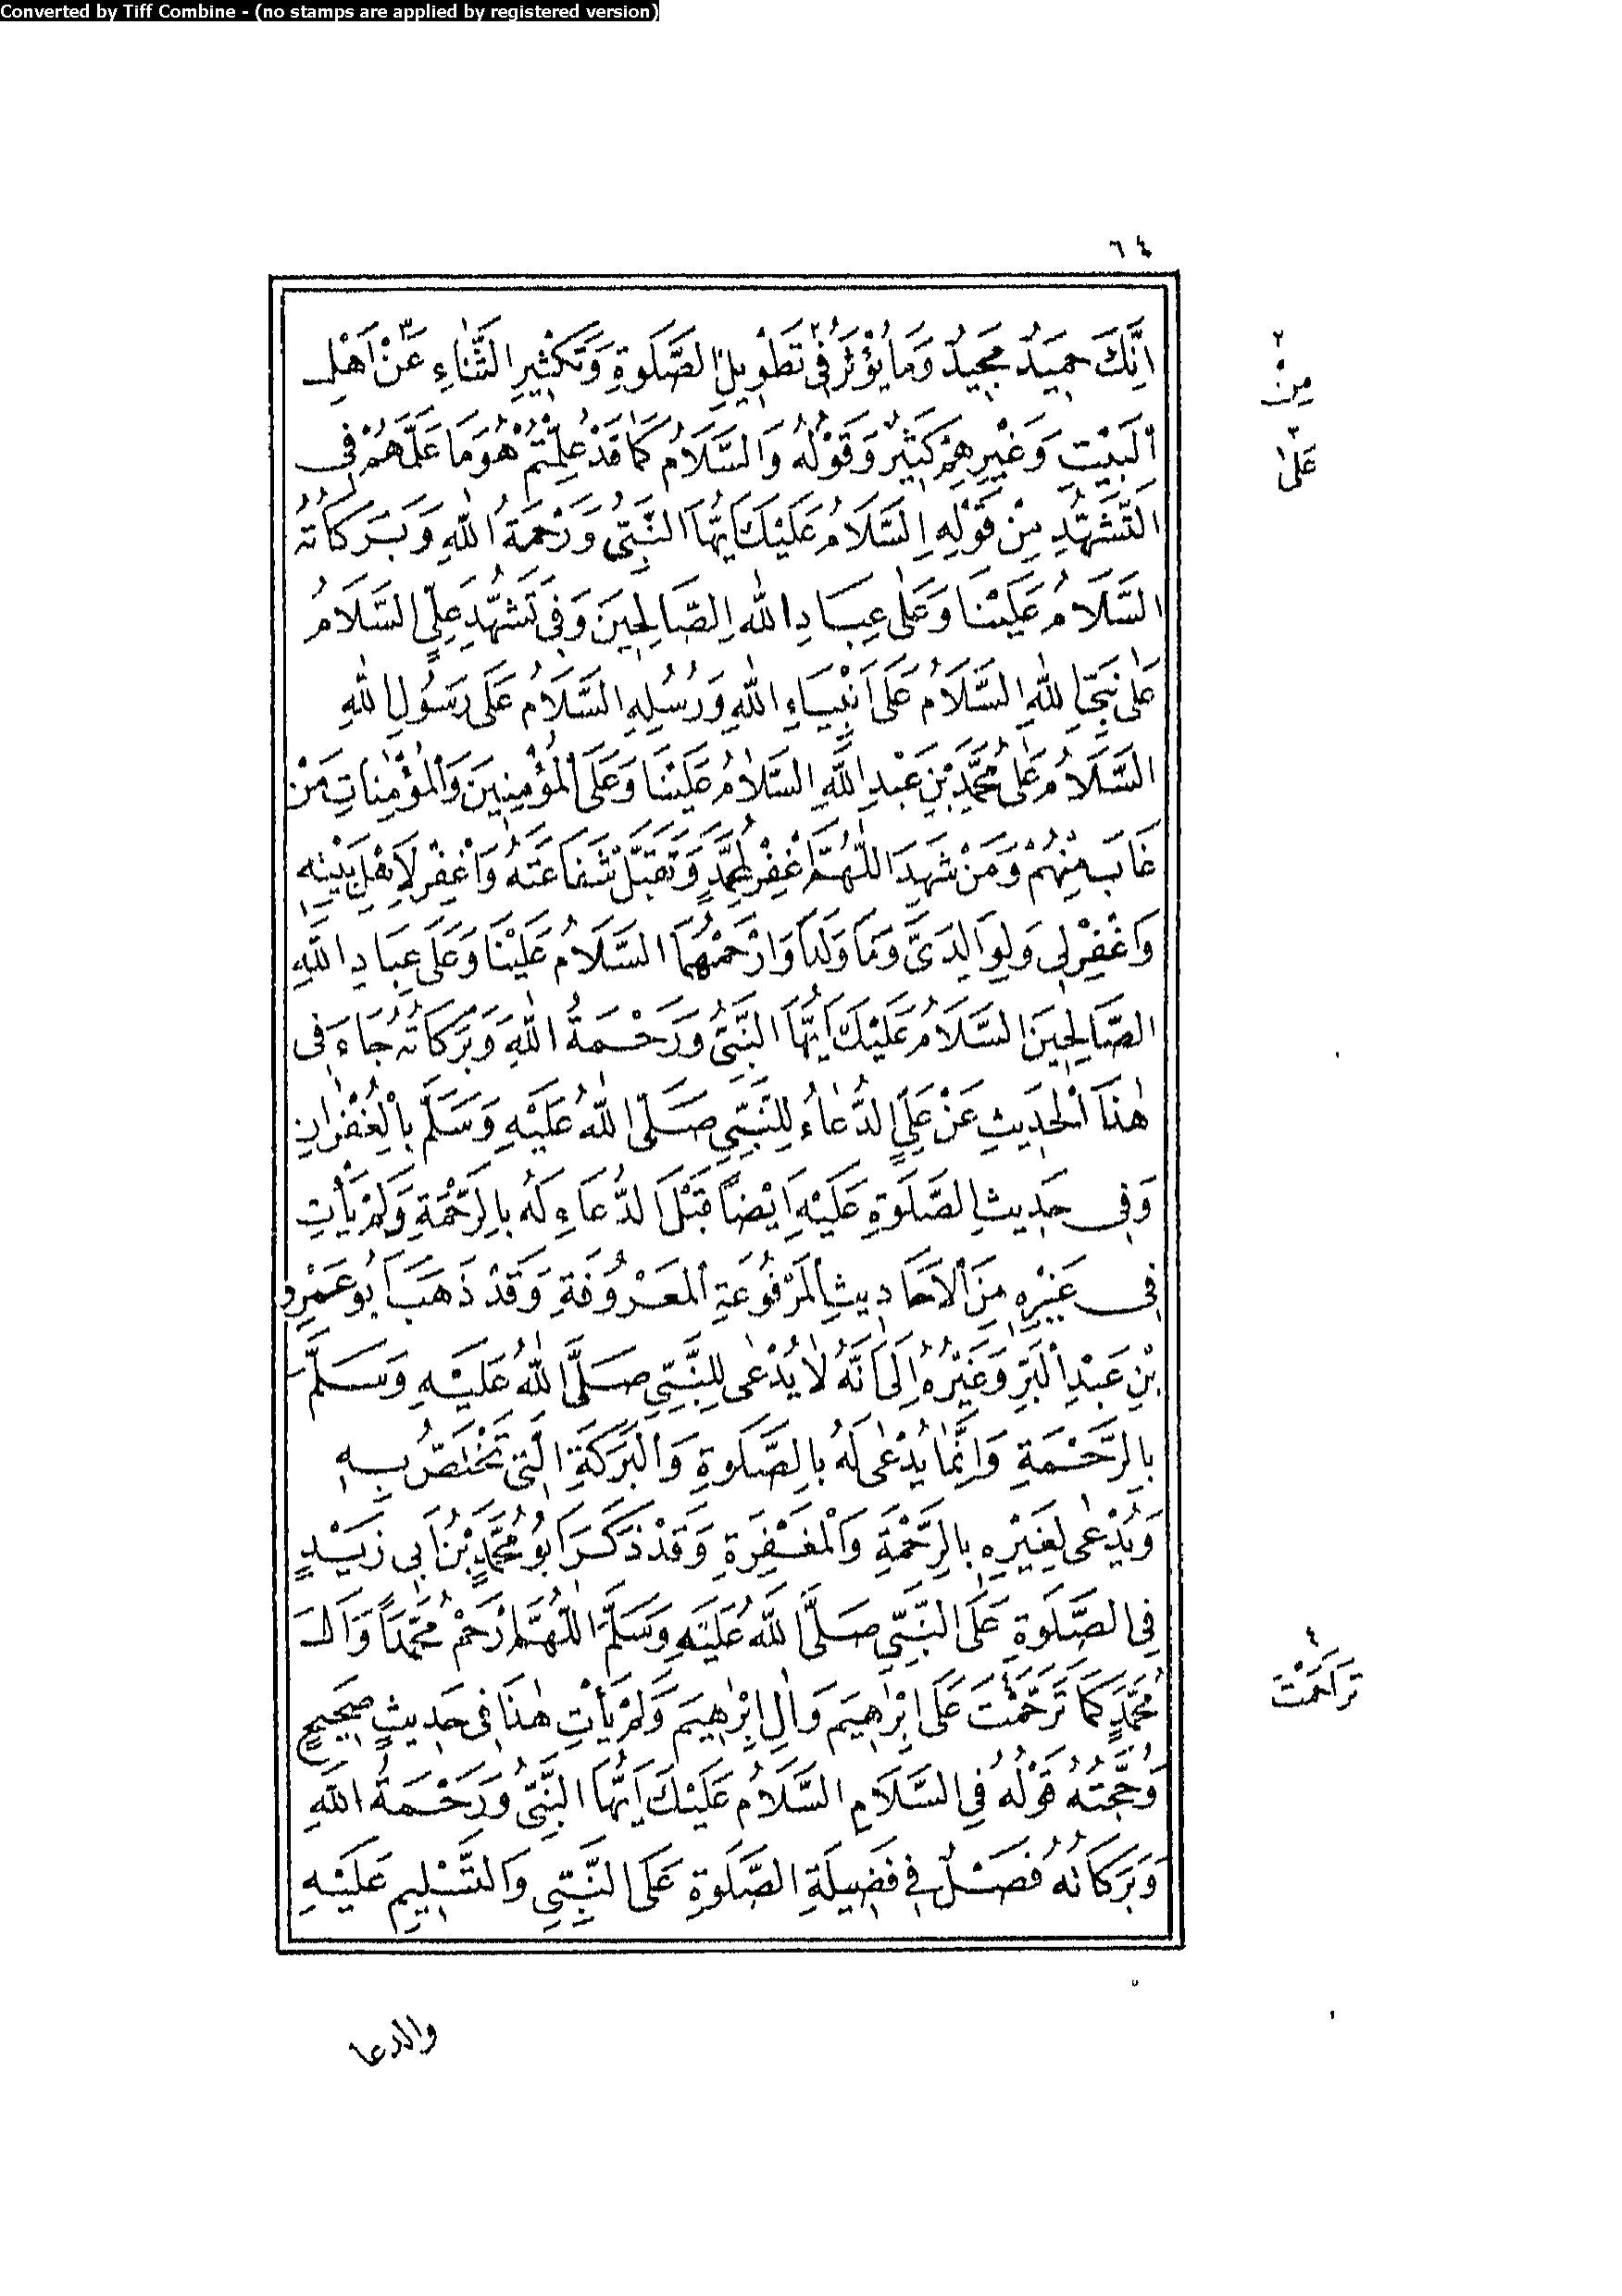 Converted by Tiff Combine - (no stamps are applied by registered version)
٦٤
اِنَّكَ حَمِيدٌ مَجِيدٌ وَمَا يُؤْثَرُ فِى٢ تَطْوِيلِ الصَّلَوةِ وَتَكْثِيرِ الثَّنَاءِ عَنْ٣ اَهْلِ
٢
مِنْ
اَلْبَيْتِ وَغَيْرِهِمْ كَثِيرٌ وَقَوْلُهُ وَالسَّلَامُ كَمَا قَدْ عُلِّمْتُمْ هُوَ مَا عَلَّمَهُمْ فِى
٣
عَلَىٰ
التَّشَهُّدِ مِنْ قَوْلِهِ اِلسَّلَامُ عَلَيْكَ اَيُّهَا النَّبِىُّ وَرَحْمَةُ اللّٰهِ وَبَرَكَاتُهُ
السَّلَامُ عَلَيْنَا وَعَلَىٰ عِبَادِ اللّٰهِ الصَّالِحِينَ وَفِى تَشَهُّدِ عَلِىٍّ السَّلَامُ
عَلَىٰ نَبِىِّ اللّٰهِ السَّلَامُ عَلَى اَنْبِيَاءِ اللّٰهِ وَرُسُلِهِ السَّلَامُ عَلَى رَسُولِ اللّٰهِ
السَّلَامُ عَلَىٰ مُحَمَّدِ بْنِ عَبْدِ اللّٰهِ السَّلَامُ عَلَيْنَا وَعَلَى الْمُؤْمِنِينَ وَالْمُؤْمِنَاتِ مَنْ
غَابَ مِنْهُمْ وَمَنْ شَهِدَ اَللّٰهُمَّ اغْفِرْ لِمُحَمَّدٍ وَتَقَبَّلْ شَفَاعَتَهُ وَاغْفِرْ لِاَهْلِ بَيْتِهِ
وَاغْفِرْلِى وَلِوَالِدَىَّ وَمَا وَلَدَا وَارْحَمْهُمَا السَّلَامُ عَلَيْنَا وَعَلَى عِبَادِ اللّٰهِ
الصَّالِحِينَ السَّلَامُ عَلَيْكَ اَيُّهَا النَّبِىُّ وَرَحْمَةُ اللّٰهِ وَبَرَكَاتُهُ جَاءَ فِى
هٰذَا الْحَدِيثِ عَنْ عَلِىٍّ الدُّعَاءُ لِلنَّبِىِّ صَلَّى اللّٰهُ عَلَيْهِ وَسَلَّمَ بِالْغُفْرَانِ
وَفِى حَدِيثِ الصَّلَوةِ عَلَيْهِ اَيْضًا قَبْلَ الدُّعَاءِ لَهُ بِالرَّحْمَةِ وَلَمْ يَأْتِ
فِى غَيْرِهِ مِنَ الْاَحَادِيثِ الْمَرْفُوعَةِ الْمَعْرُوفَةِ وَقَدْ ذَهَبَ اَبُو عَمْرِو
بْنِ عَبْدِ الْبَرِّ وَغَيْرُهُ اِلَى اَنَّهُ لَا يُدْعٰى لِلنَّبِىِّ صَلَّى اللّٰهُ عَلَيْهِ وَسَلَّمَ
بِالرَّحْمَةِ وَاِنَّمَا يُدْعٰى لَهُ بِالصَّلَوةِ وَالْبَرَكَةِ الَّتِى تَخْتَصُّ بِهِ
وَيُدْعٰى لِغَيْرِهِ بِالرَّحْمَةِ وَالْمَغْفِرَةِ وَقَدْ ذَكَرَ اَبُو مُحَمَّدِ بْنُ اَبِى زَيْدٍ
فِى الصَّلَوةِ عَلَى النَّبِىِّ صَلَّى اللّٰهُ عَلَيْهِ وَسَلَّمَ اَللّٰهُمَّ ارْحَمْ مُحَمَّدًا وَاٰلَ
مُحَمَّدٍ كَمَا تَرَحَّمْتَ٤ عَلَى اِبْرٰهِيمَ وَاٰلِ اِبْرٰهِيمَ وَلَمْ يَأْتِ هٰذَا فِى حَدِيثٍ صَحِيحٍ
٤
تَرَاحَمْتَ
وَحُجَّتُهُ قَوْلُهُ فِى السَّلَامِ السَّلَامُ عَلَيْكَ اَيُّهَا النَّبِىُّ وَرَحْمَةُ اللّٰهِ
وَبَرَكَاتُهُ فَصْلٌ فِى فَضِيلَةِ الصَّلَوةِ عَلَى النَّبِىِّ وَالتَّسْلِيمِ عَلَيْهِ
والدعا